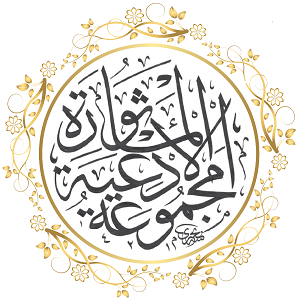 مجموعة
الأدعية
المأثورة